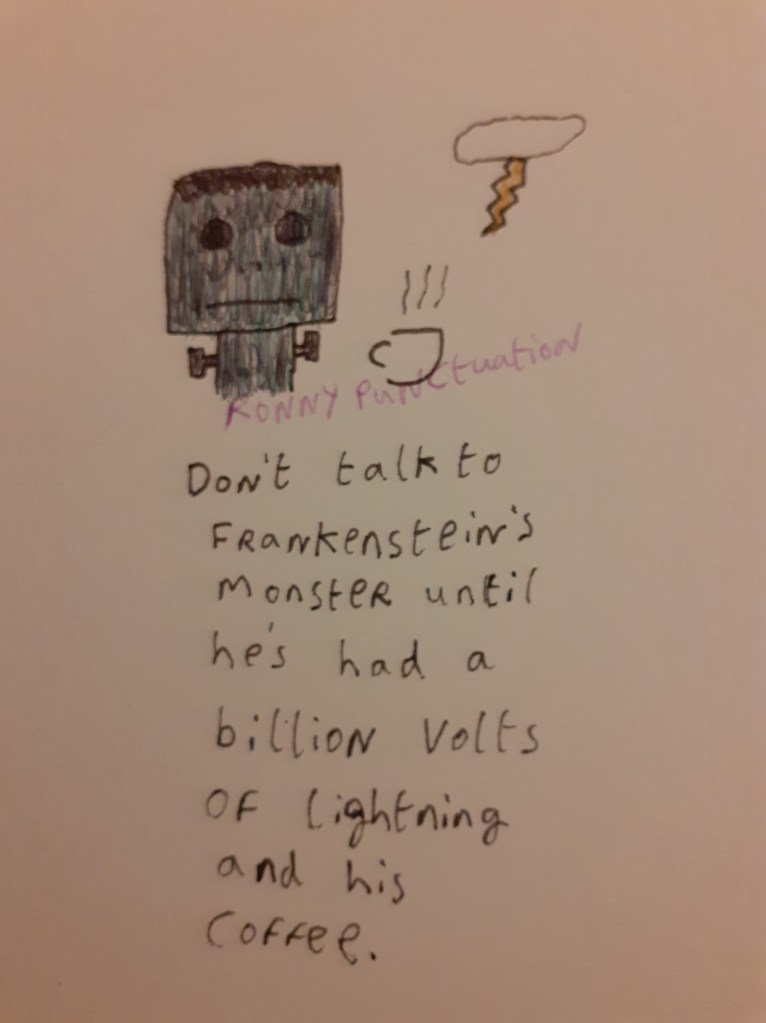 RONNY PUNCtuation
Don't talk to
Frankenstein's
Monster until
he's had a
billion Volts
of lightning
and his
Coffee.